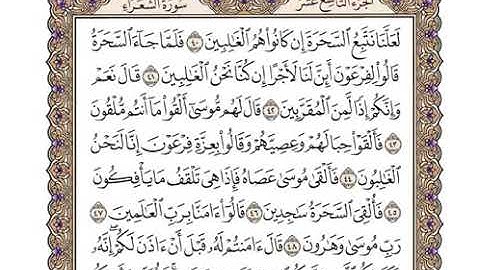 الجزء التاسع عشر سورة الشعراء
لَعَلَّنَا نَتَّبِعُ السَّحَرَةَ إِن كَانُوا هُمُ الْغَالِبِينَ ٤٠ فَلَمَّا جَاءَ السَّحَرَةُ
قَالُوا لِفِرْعَوْنَ أَئِنَّ لَنَا لَأَجْرًا إِن كُنَّا نَحْنُ الْغَالِبِينَ ٤١ قَالَ نَعَمْ
وَإِنَّكُمْ إِذًا لَّمِنَ الْمُقَرَّبِينَ ٤٢ قَالَ لَهُم مُّوسَىٰ أَلْقُوا مَا أَنتُم مُّلْقُونَ
٤٣ فَأَلْقَوْا حِبَالَهُمْ وَعِصِيَّهُمْ وَقَالُوا بِعِزَّةِ فِرْعَوْنَ إِنَّا لَنَحْنُ
الْغَالِبُونَ ٤٤ فَأَلْقَىٰ مُوسَىٰ عَصَاهُ فَإِذَا هِيَ تَلْقَفُ مَا يَأْفِكُونَ
٤٥ فَأُلْقِيَ السَّحَرَةُ سَاجِدِينَ ٤٦ قَالُوا آمَنَّا بِرَبِّ الْعَالَمِينَ ٤٧
رَبِّ مُوسَىٰ وَهَارُونَ ٤٨ قَالَ آمَنتُمْ لَهُ قَبْلَ أَنْ آذَنَ لَكُمْ إِنَّهُ